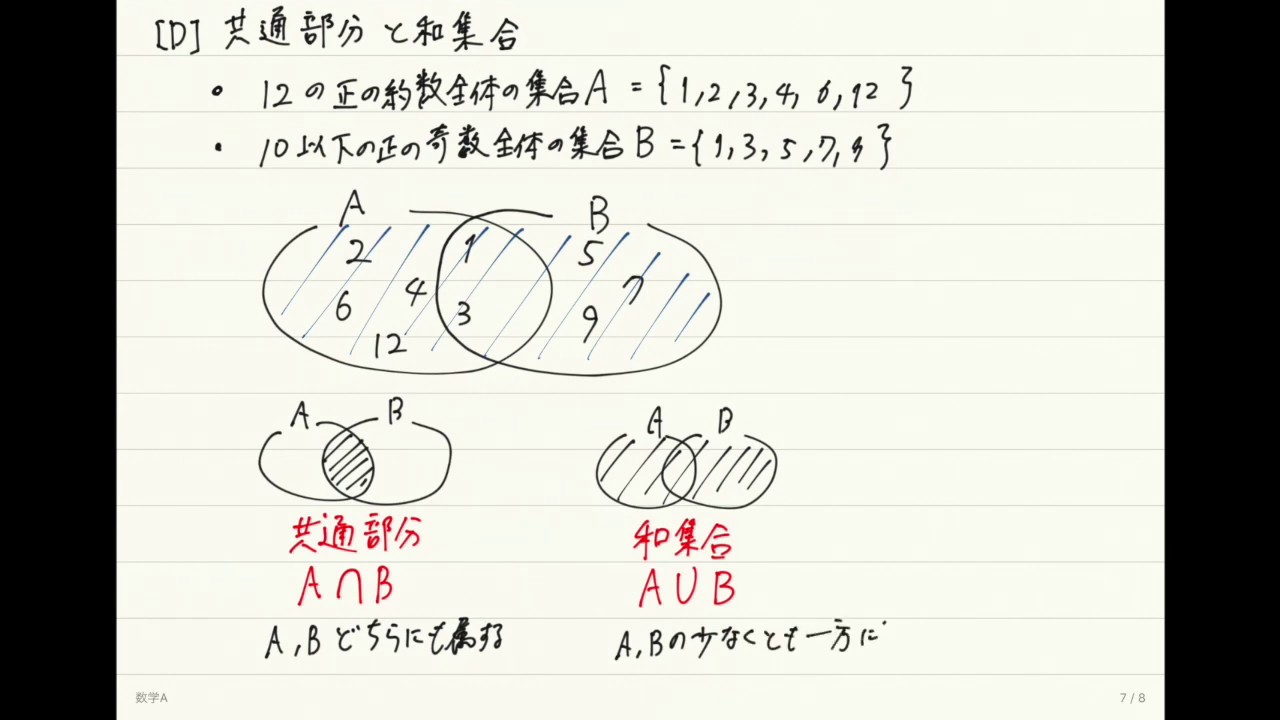 [D] 共通部分と和集合
・ 12の正の約数全体の集合A = {1,2,3,4,6,12}
・ 10以下の正の奇数全体の集合B = {1,3,5,7,9}
A B
2 1 5
4 7
6 3 9
12
A B A B
共通部分 和集合
A∩B A∪B
A,Bどちらにも属する A,Bの少なくとも一方に
数学A 7 / 8